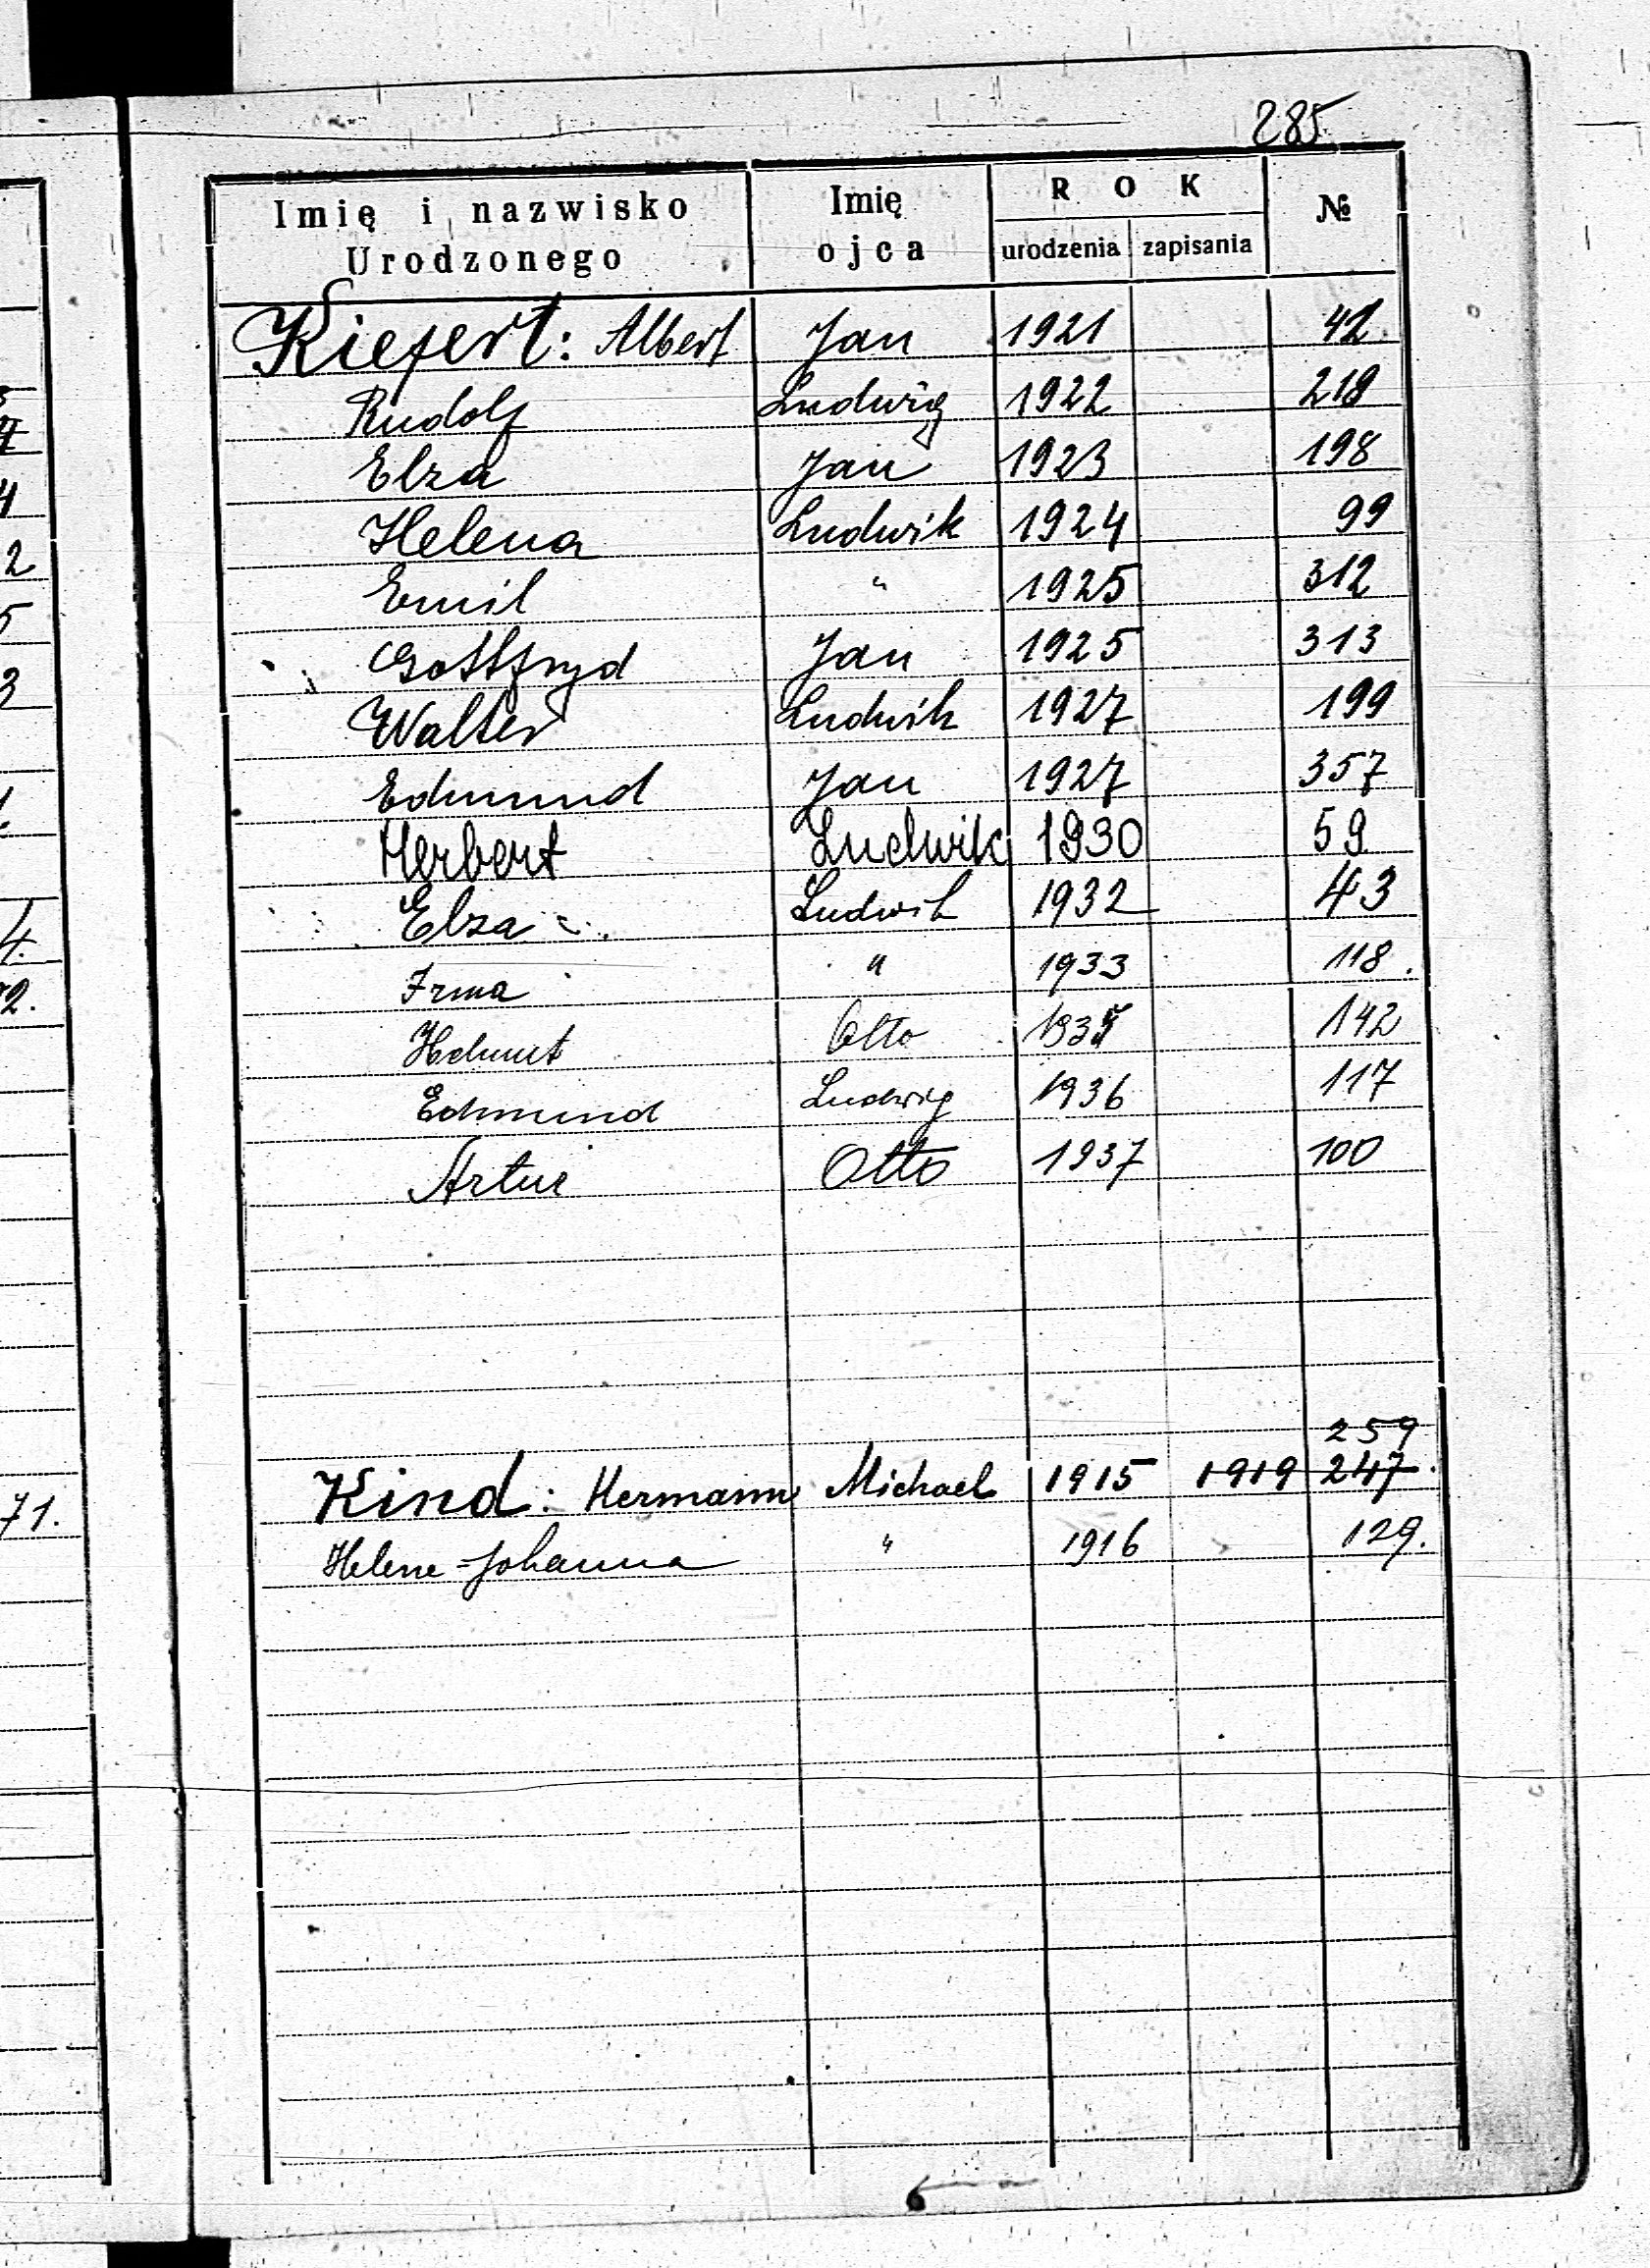 285
Imię i nazwisko Urodzonego
Imię ojca
ROK
urodzenia zapisania
№
Kiefert: Albert Jan 1921 42.
Rudolf Ludwig 1922 218
Elza Jan 1923 198
Helena Ludwik 1924 99
Emil " 1925 312
Gottfryd Jan 1925 313
Walter Ludwik 1927 199
Edmund Jan 1927 357
Herbert Ludwik 1930 59
Elza Ludwik 1932 43
Irma " 1933 118.
Helmut Otto 142
Edmund Ludwig 1936 117
Artur Otto 1937 100
259
Kind: Hermann Michael 1915 1919 247.
Helene-Johanna " 1916 129.
71.